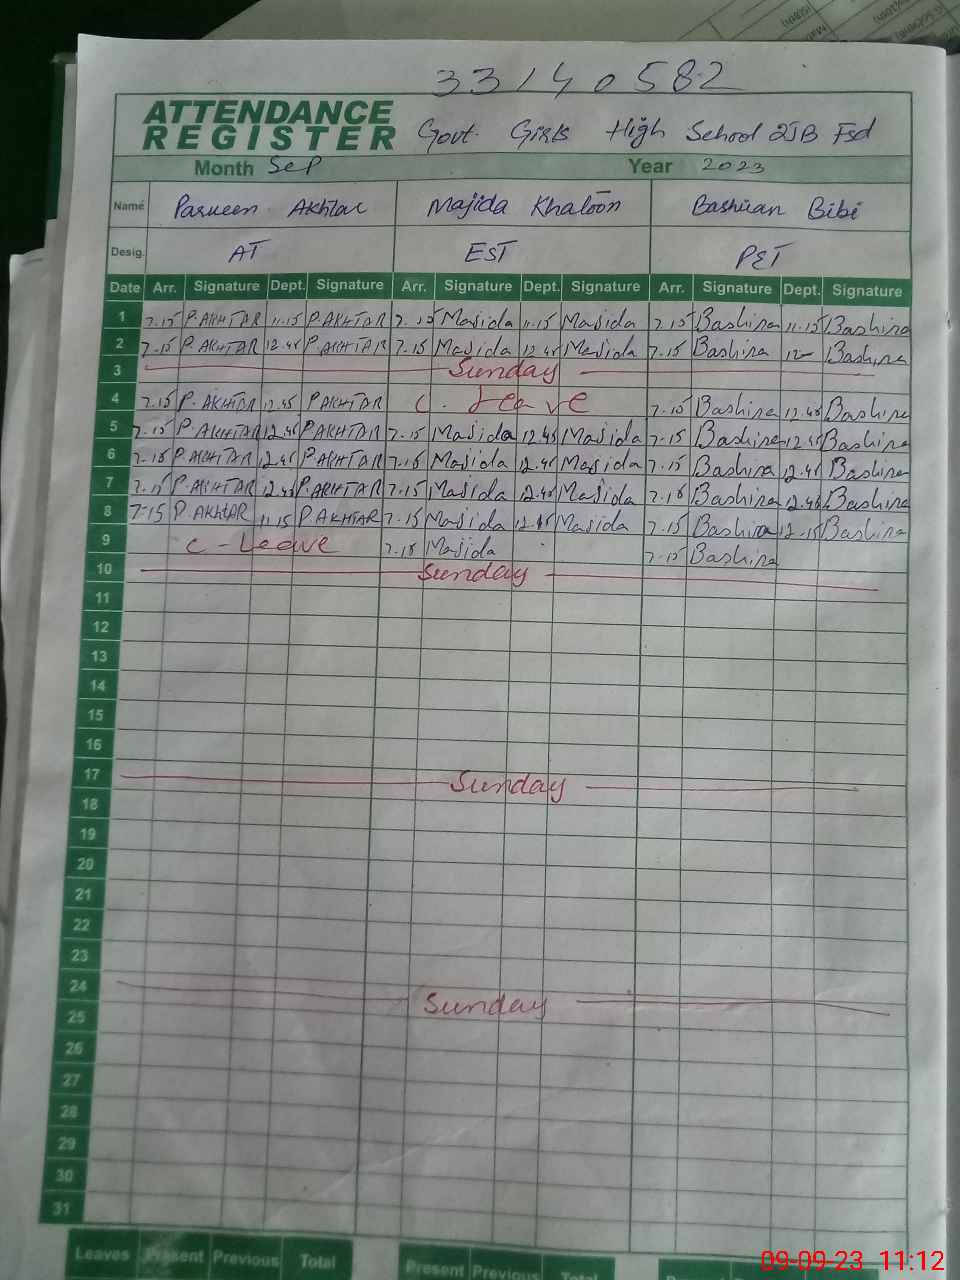 33140582
ATTENDANCE
REGISTER
Govt. Girls High School 2JB Fsd
Month Sep Year 2023
Name Parveen Akhtar Majida Khatoon Bashiran Bibi
Desig. AT EST PET
Date Arr. Signature Dept. Signature Arr. Signature Dept. Signature Arr. Signature Dept. Signature
1 7.15 P.AKHTAR 11.15 P.AKHTAR 7.15 Majida 11.15 Majida 7.15 Bashira 11.15 Bashira
2 7.15 P.AKHTAR 12.45 P.AKHTAR 7.15 Majida 12.45 Majida 7.15 Bashira 12 Bashira
3 Sunday
4 7.15 P.AKHTAR 12.45 P.AKHTAR C. Leave 7.15 Bashira 12.45 Bashira
5 7.15 P.AKHTAR 12.45 P.AKHTAR 7.15 Majida 12.45 Majida 7.15 Bashira 12.45 Bashira
6 7.15 P.AKHTAR 12.45 P.AKHTAR 7.15 Majida 12.45 Majida 7.15 Bashira 12.45 Bashira
7 7.15 P.AKHTAR 12.45 P.AKHTAR 7.15 Majida 12.45 Majida 7.15 Bashira 12.45 Bashira
8 7:15 P.AKhtAR 11.15 P.AKHTAR 7.15 Majida 12.15 Majida 7.15 Bashira 12.15 Bashira
9 C-Leave 7.15 Majida 7.15 Bashira
10 Sunday
11
12
13
14
15
16
17 Sunday
18
19
20
21
22
23
24 Sunday
25
26
27
28
29
30
31
Leaves Present Previous Total Present Previous Total
09-09-23 11:12